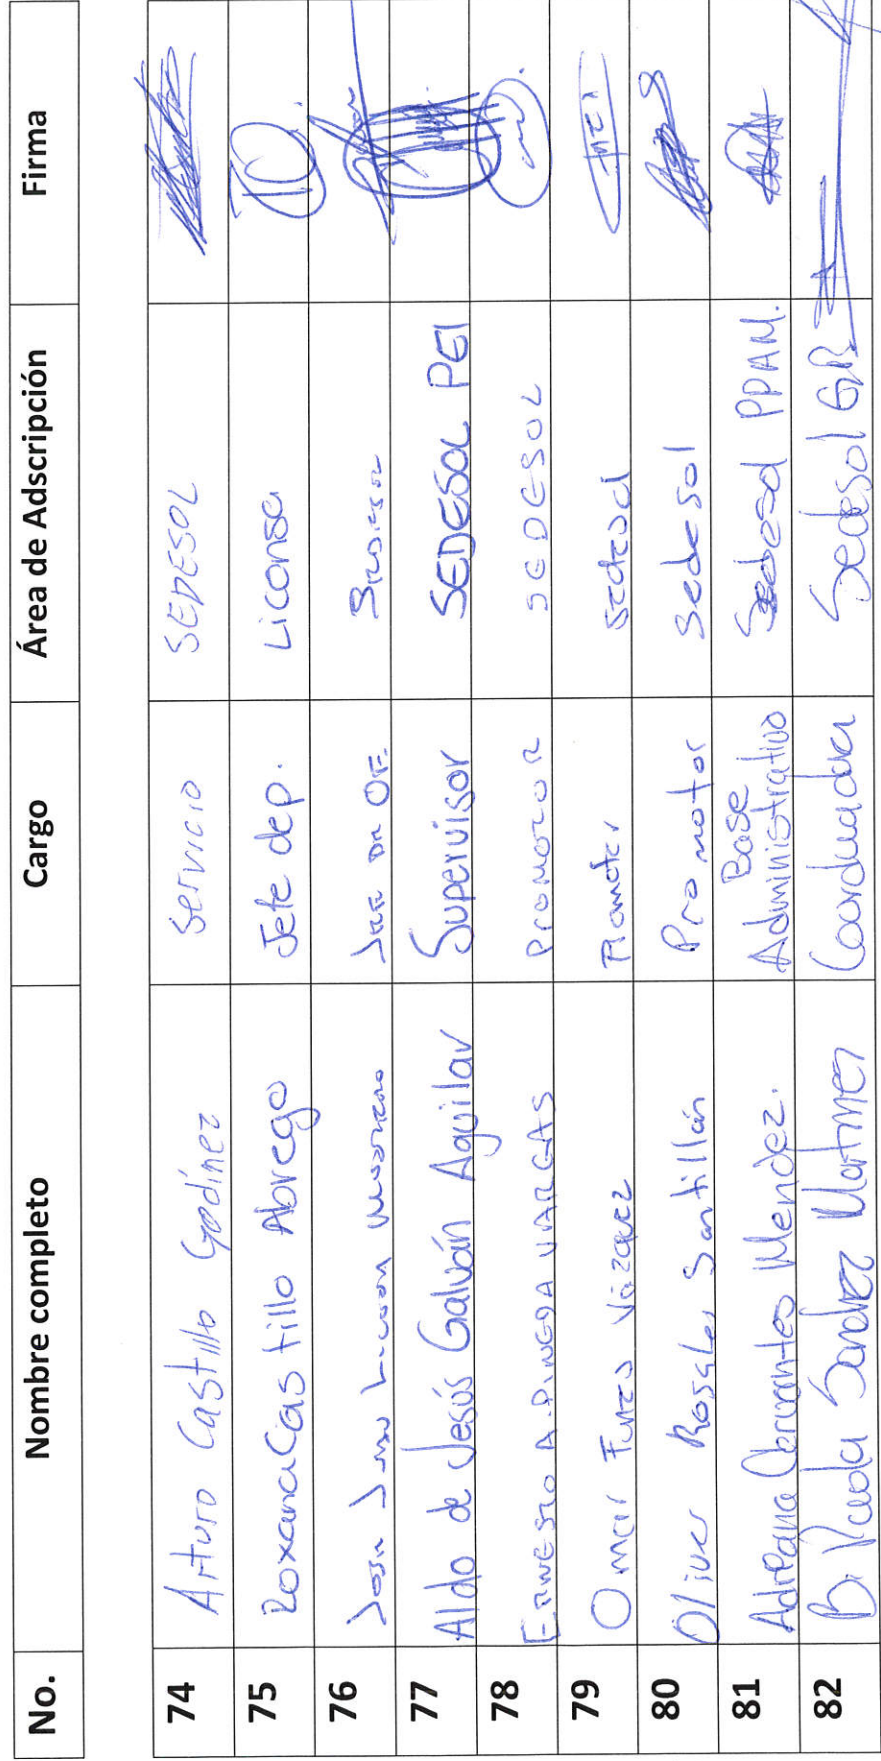 No. Nombre completo Cargo Área de Adscripción Firma
74 Arturo Castillo Godínez Servicio SEDESOL
75 Roxana Castillo Abrego Jefe dep. Liconsa
76 OF.
77 Aldo de Jesús Galván Aguilar Supervisor SEDESOL PEI
78 ERNESTO A. PINEDA VARGAS PROMOTOR SEDESOL
79 Omar Vázquez Promotor Sedesol
80 Oliver Rosales Santillán Promotor Sedesol
81 Adreana Cervantes Mendez. Base Administrativo Sedesol PPAM.
82 B. Paola Sanchez Martinez Coordinadora Sedesol